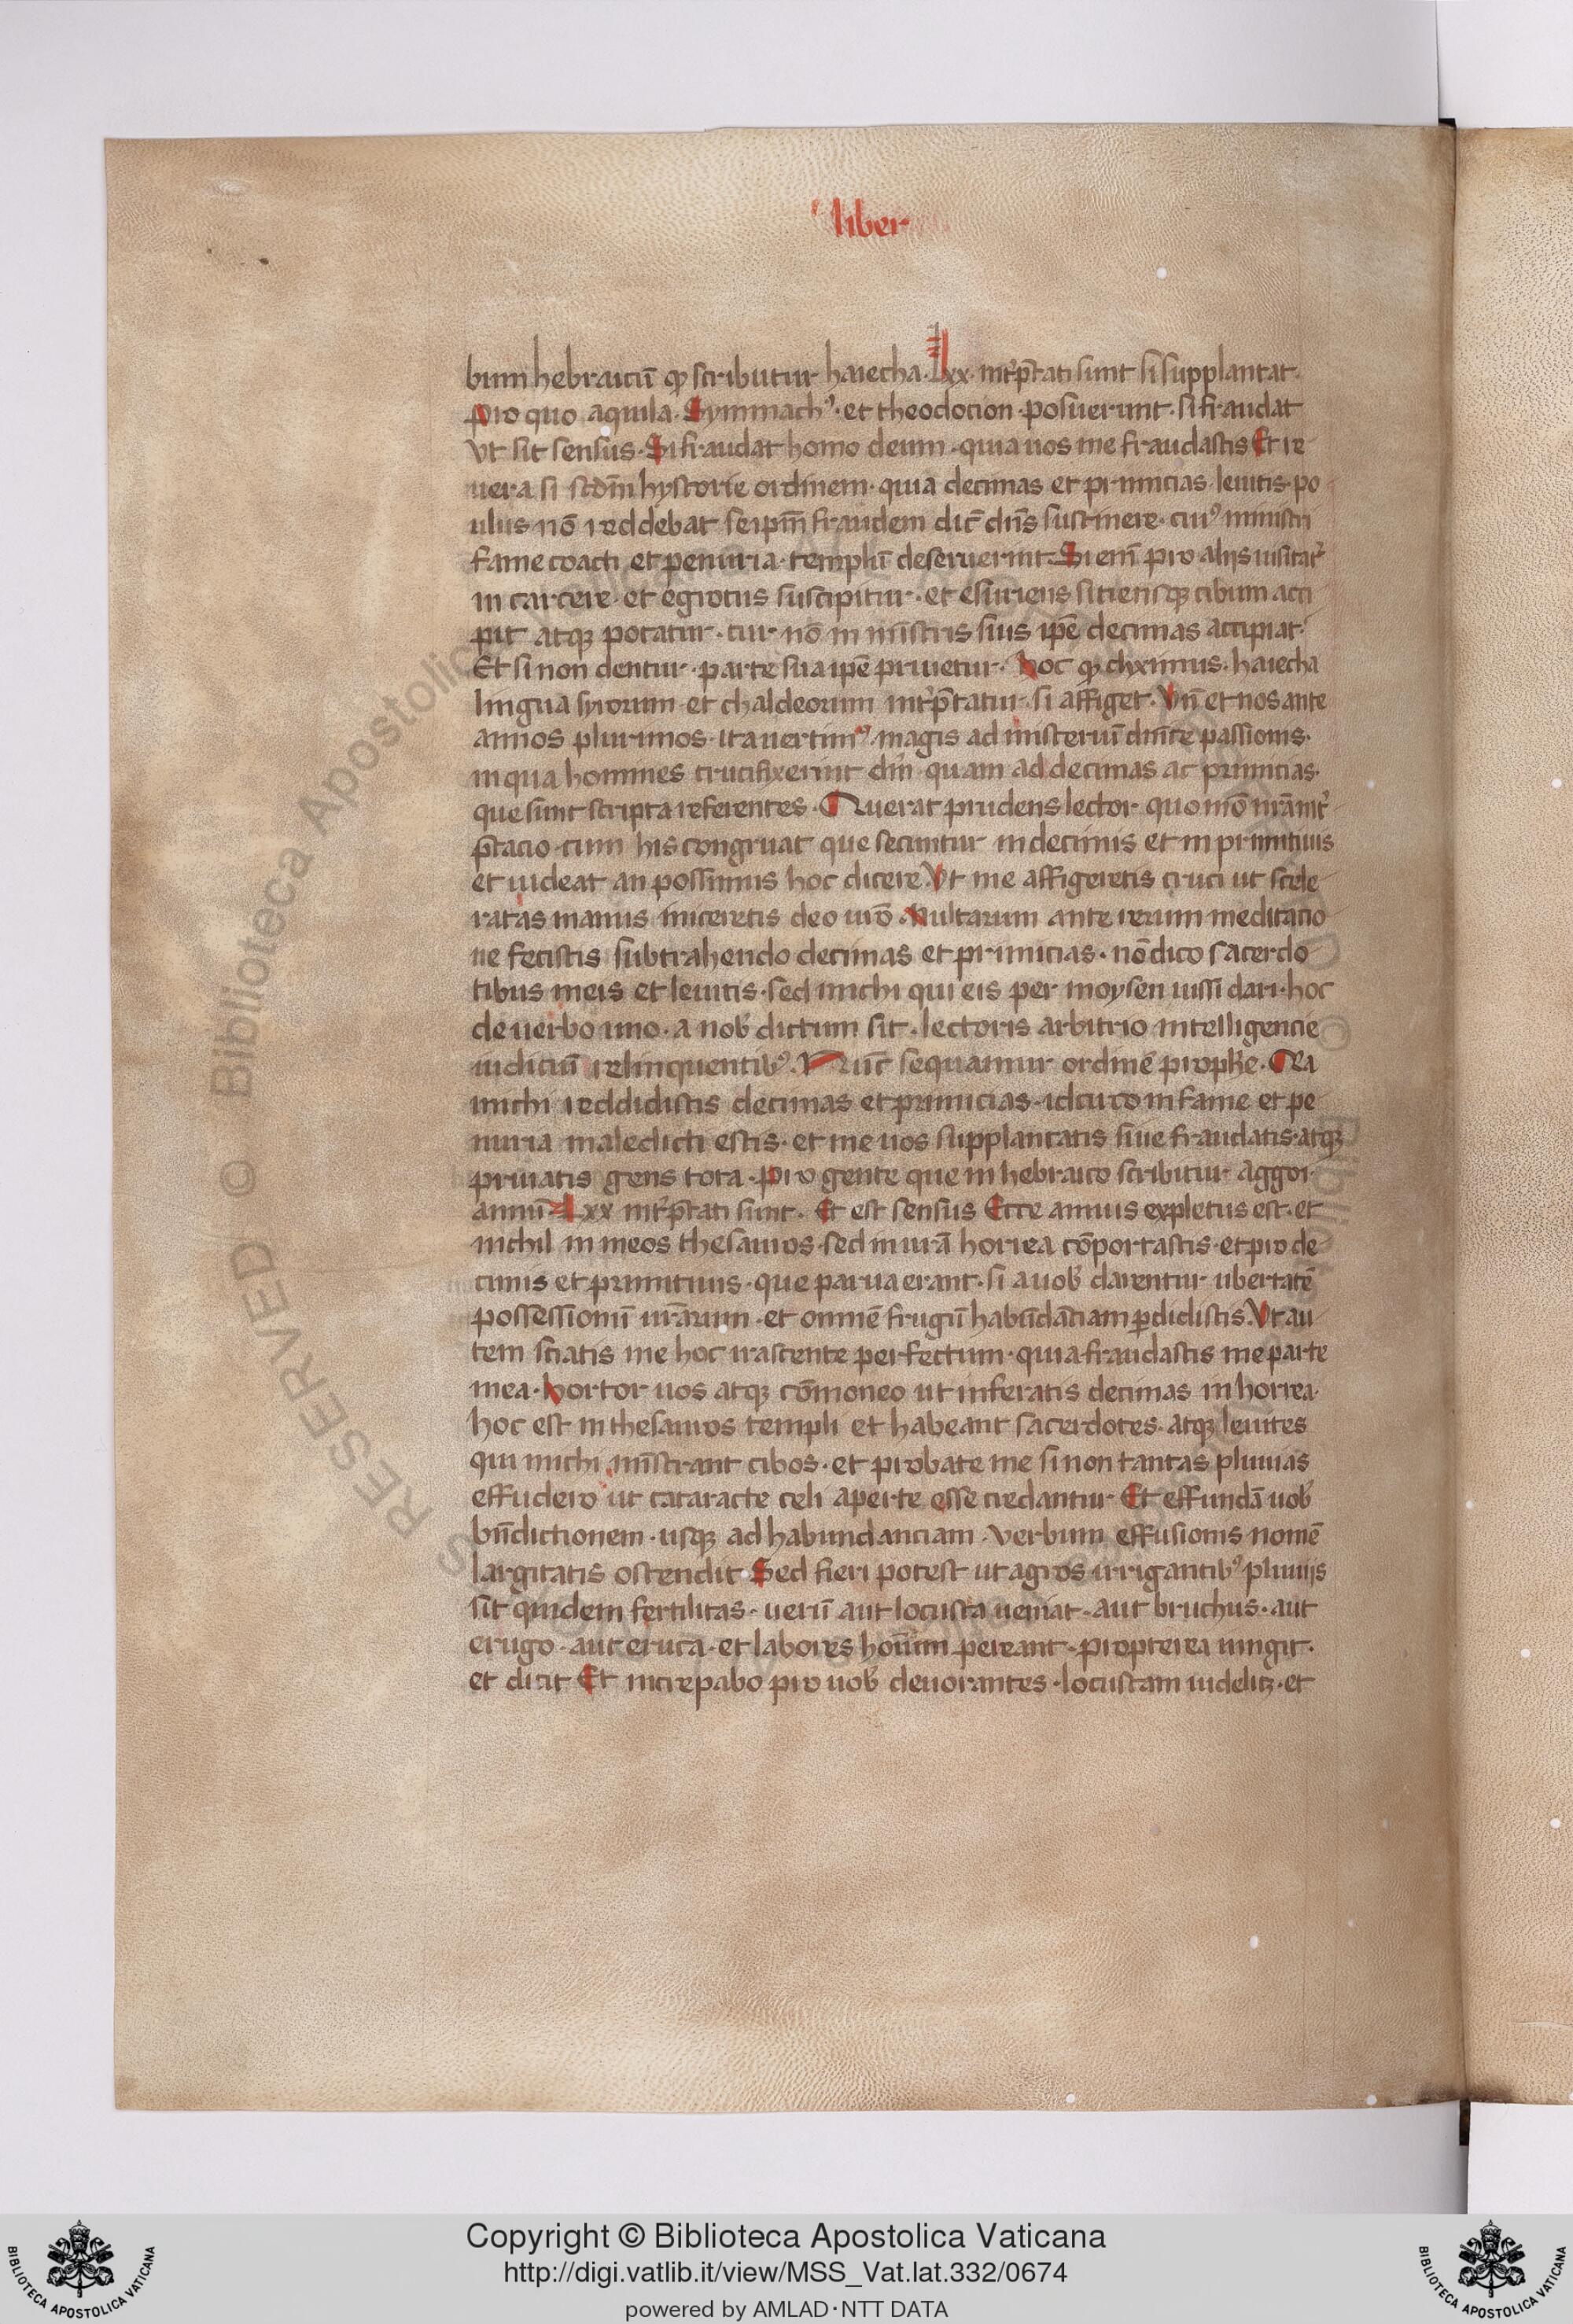 liber
bum hebraicū qđ scribitur haiecha. Lxx. int̉p̄tati sunt si supplantat.
pro quo aquila. Symmachꝰ. et theodocion. posuerunt. si fraudat
Vt sit sensus. Si fraudat homo deum. quia uos me fraudastis Et re
uera si scd̄m hystorie ordinem. quia decimas et primicias leuitis. po
ulus nō reddebat seipm̄ fraudem dic̄ dn̄s sustinere. cuiꝰ ministri
fame coacti et penuria. templū deseruerint. Si eni᷒ pro alijs uisitat᷒
in carcere. et egrotus suscipitur. et esuriens sitiensqꝫ cibum acci
pit atqꝫ potatur. cur nō in ministris suis ipē decimas accipiat.
Et si non dentur. parte sua ipē priuetur. Hoc qđ diximus. haiecha
lingua syrorum et chaldeorum int̉p̄tatur. si affiget. Vn̄ et nos ante
annos plurimos. ita uertimꝰ. magis ad misteriū dn̄ice passionis.
in qua homines crucifixerint dn̄m. quam ad decimas ac primicias.
que sunt scripta referentes. Querat prudens lector quomō nr̄a int̉
p̄tacio cum his congruat que secuntur in decimis et in primitiuis
et uideat an possimus hoc dicere. Vt me affigeretis cruci ut scele
ratas manus iniceretis deo ur̄o. Multarum ante rerum meditacio
ne fecistis subtrahendo decimas et primicias. nō dico sacerdo
tibus meis et leuitis. sed michi qui eis per moysen iussi dari. hoc
de uerbo uno. a nob̄ dictum sit. lectoris arbitrio intelligencie
iudiciū relinquentibꝰ. Nūc sequamur ordinē prophē. Qia
michi reddidistis decimas et primicias. idcirco in fame et pe
nuria maledicti estis. et me uos supplantatis siue fraudatis. atqꝫ
priuatis gens tota. Pro gente que in hebraico scribitur aggoi.
annū Lxx int̉p̄tati sunt. Et est sensus Ecce annus expletus est. et
nichil in meos thesauros. sed in ur̄a horrea cōportastis. et pro de
cimis et primitiuis. que parua erant. si a uob̄ darentur ubertatē
possessionū ur̄arum. et omnē frugū habūdāciam ꝑdidistis. Vt au
tem sciatis me hoc irascente perfectum. quia fraudastis me parte
mea. Hortor uos atqꝫ cōmoneo ut inferatis decimas in horrea.
hoc est in thesauros templi et habeant sacerdotes. atqꝫ leuites
qui michi ministrant cibos. et probate me si non tantas pluuias
effudero ut cataracte celi aperte esse credantur Et effundā uob̄
bn̄dictionem. usqꝫ ad habundanciam. verbum effusionis nomē
largitatis ostendit Sed fieri potest ut agros irrigantibꝰ pluuijs
sit quidem fertilitas. uerū aut locusta ueniat. aut bruchus. aut
erugo. aut eruca. et labores hoīm pereant. propterea iungit.
et dicit Et increpabo pro uob̄ deuorantes. locustam uidelicꝫ. et
Copyright © Biblioteca Apostolica Vaticana
http://digi.vatlib.it/view/MSS_Vat.lat.332/0674
powered by AMLAD·NTT DATA